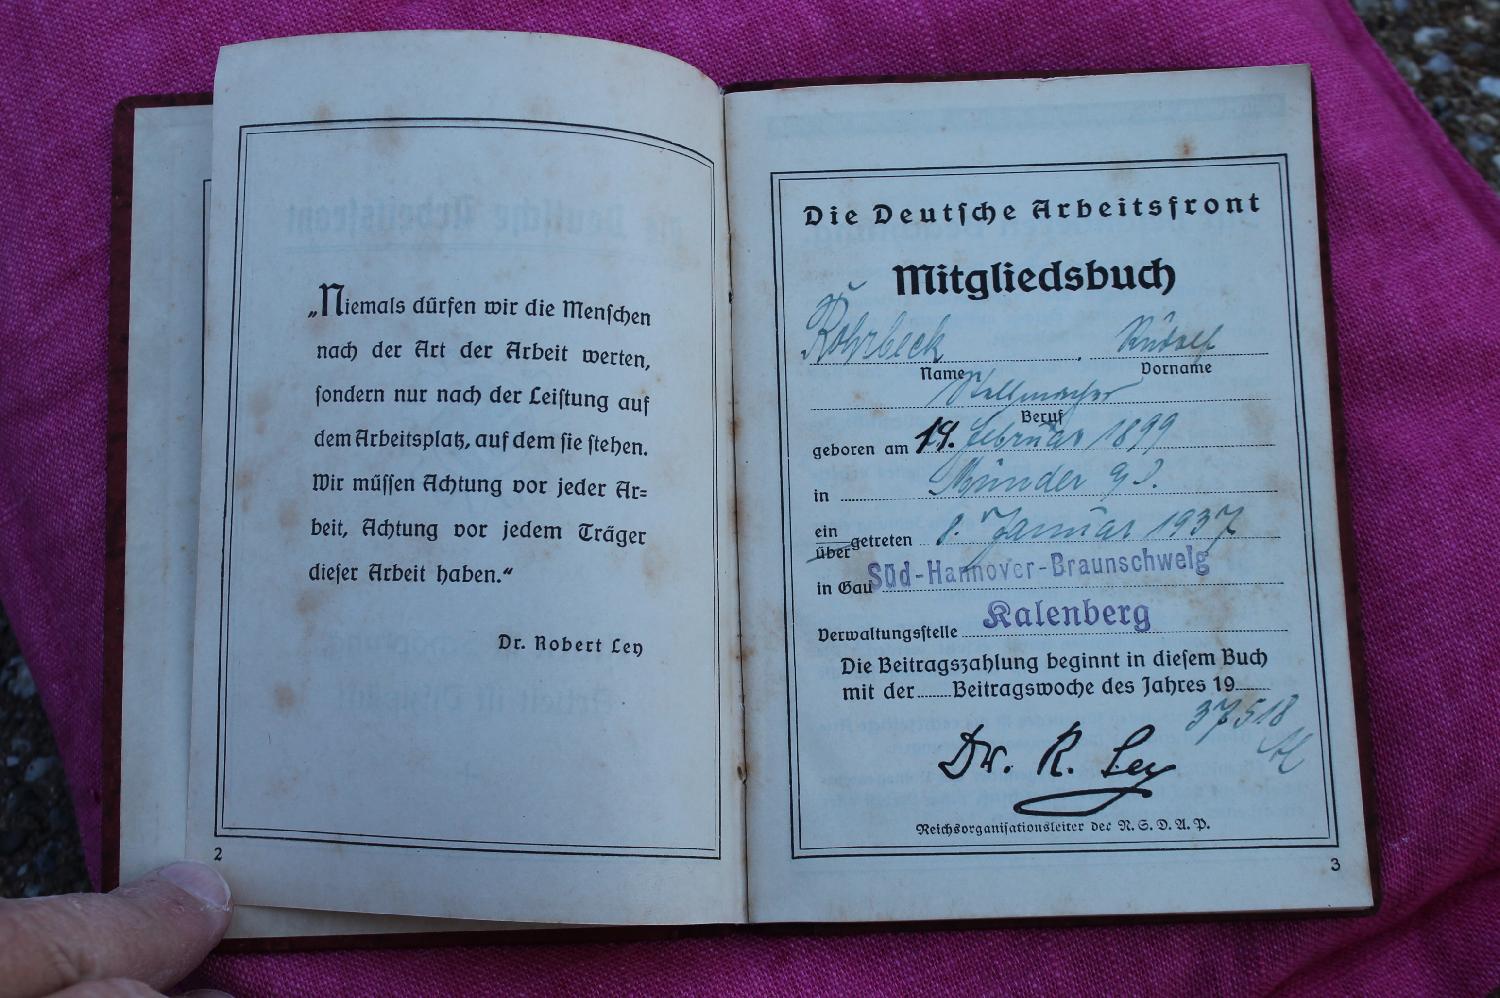 „Niemals dürfen wir die Menschen
nach der Art der Arbeit werten,
sondern nur nach der Leistung auf
dem Arbeitsplatz, auf dem sie stehen.
Wir müssen Achtung vor jeder Ar-
beit, Achtung vor jedem Träger
dieser Arbeit haben.“
Dr. Robert Ley
2
Die Deutsche Arbeitsfront
Mitgliedsbuch
Rohrbeck, Rudolf
Name Vorname
Stellmacher
Beruf
geboren am 19. Februar 1899
in Münder a/D.
ein
über getreten 1. Januar 1937
in Gau Süd-Hannover-Braunschweig
Verwaltungsstelle Kalenberg
Die Beitragszahlung beginnt in diesem Buch
mit der ...... Beitragswoche des Jahres 19......
37518
Dr. R. Ley
Reichsorganisationsleiter der N.S.D.A.P.
3